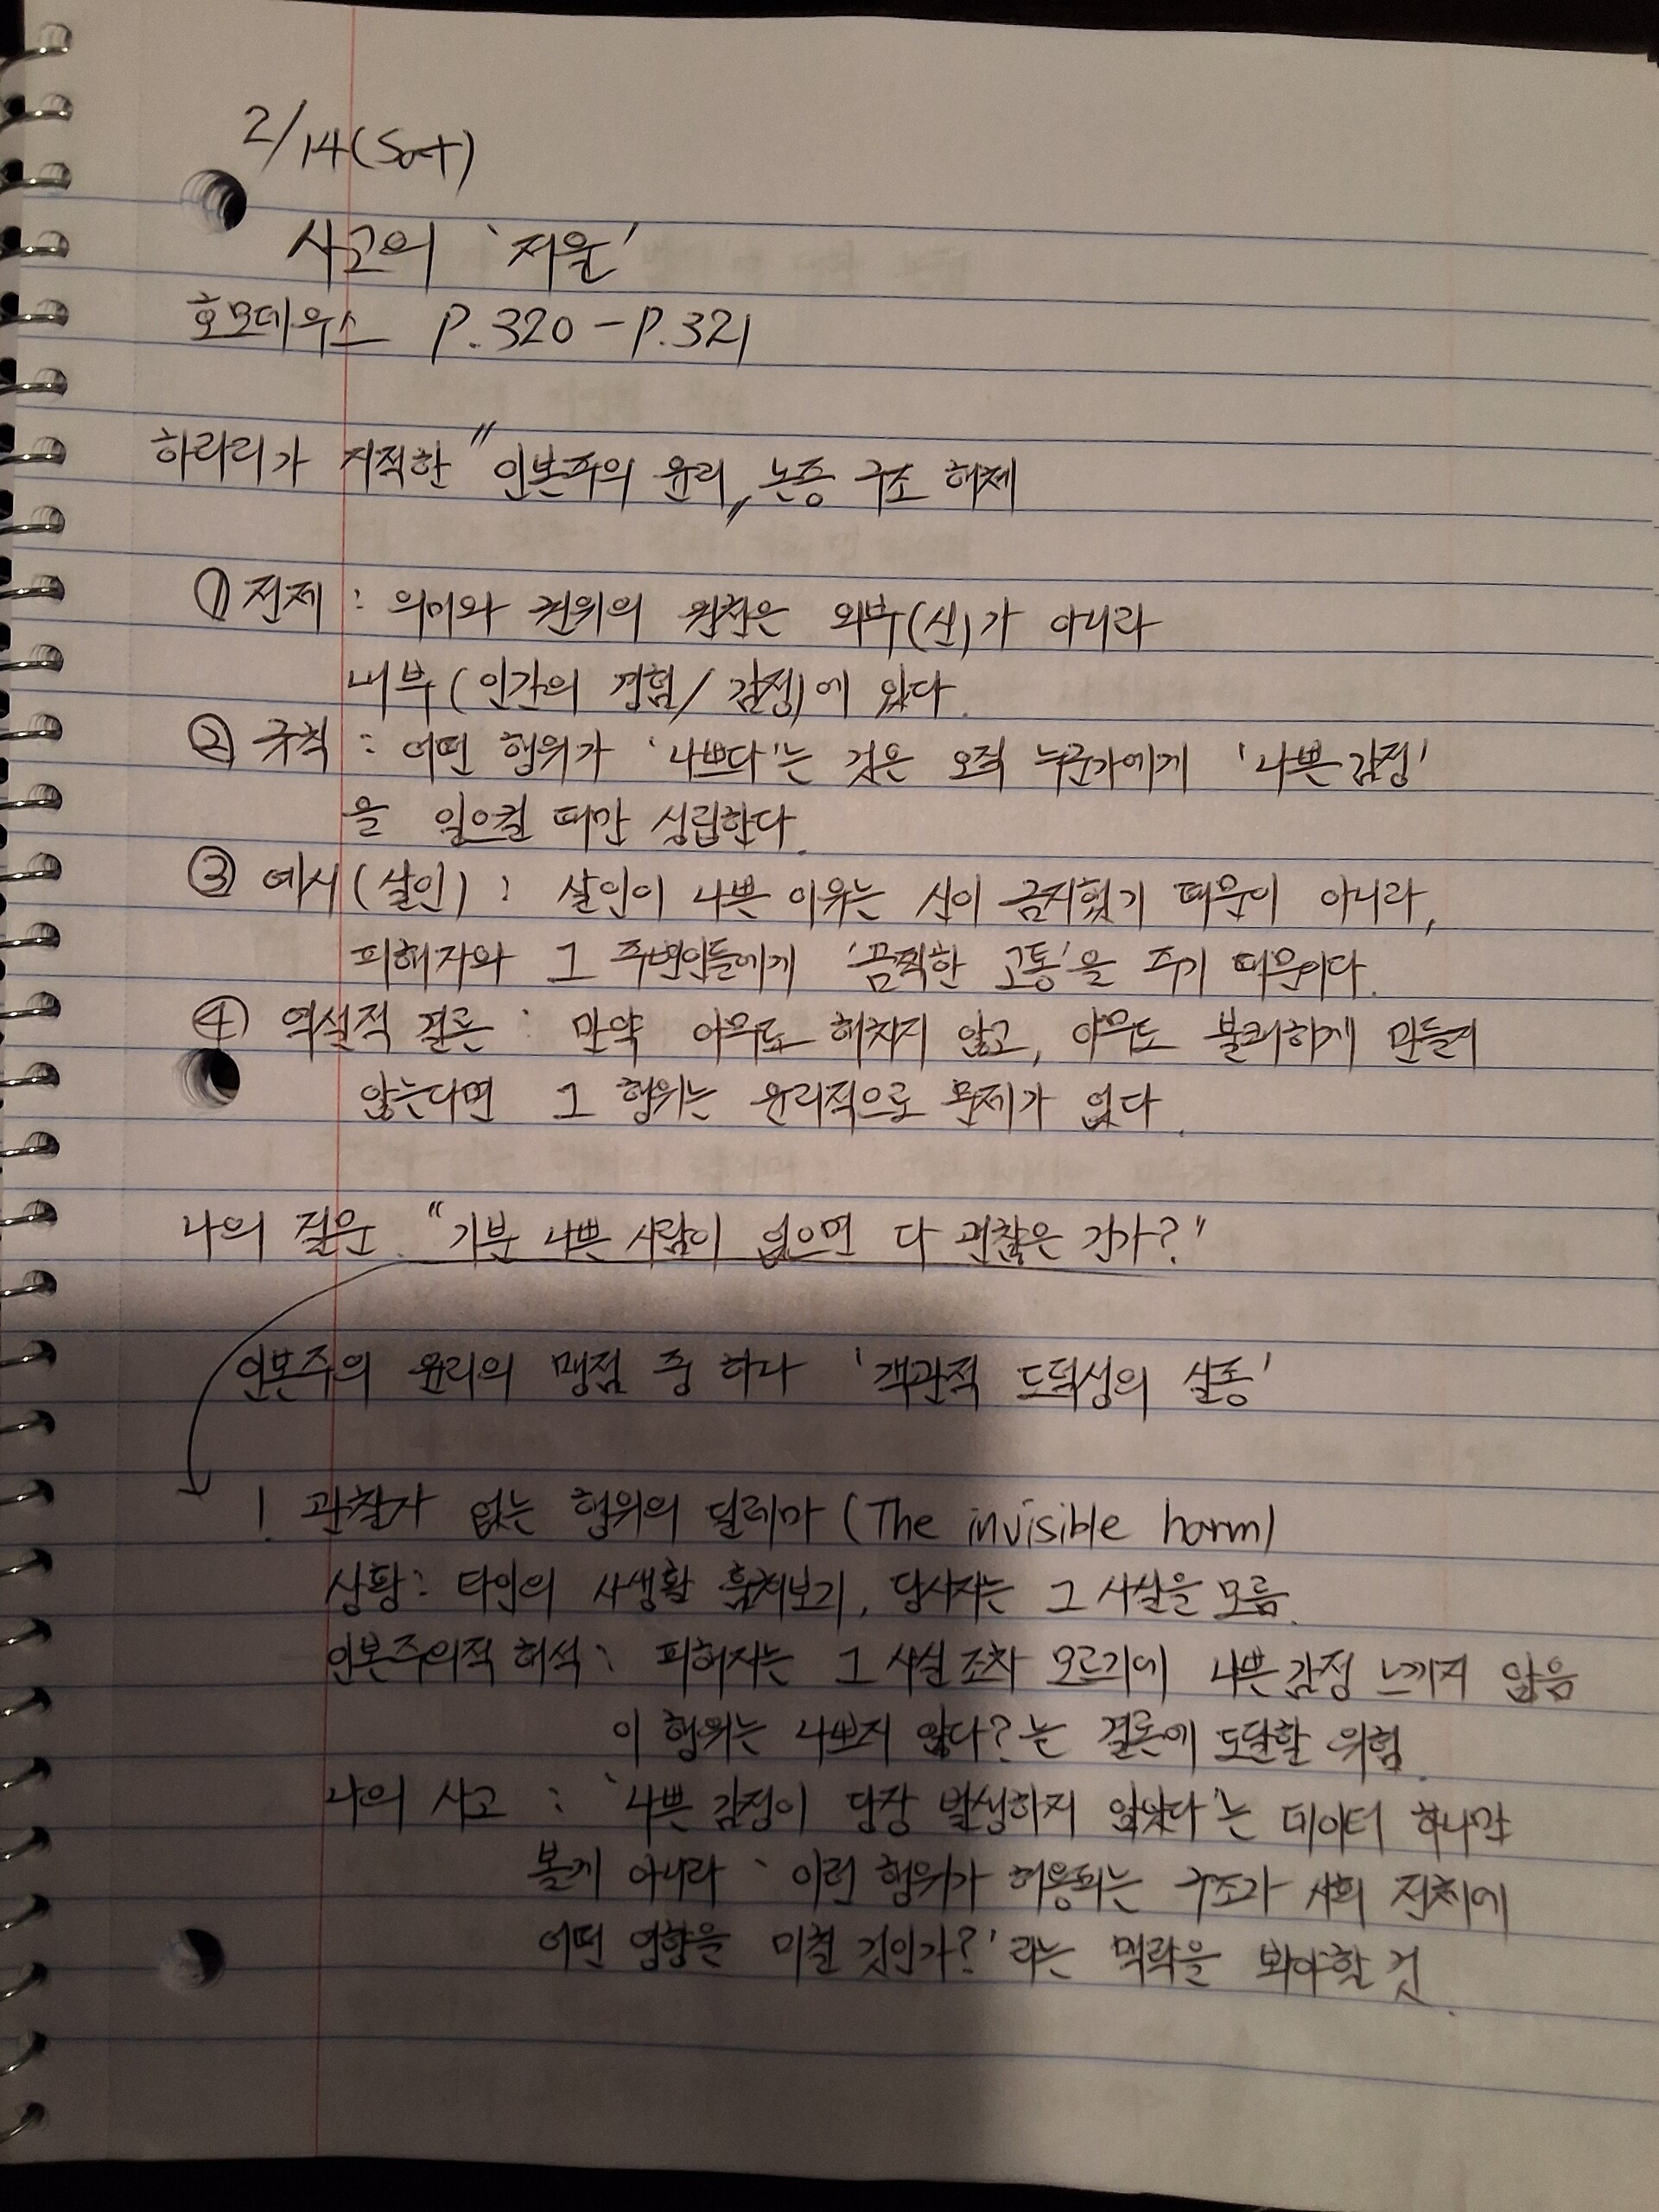 2/14(Sat)
사고의 '저울'
호모데우스 P.320 - P.321
하라리가 지적한 "인본주의 윤리" 논증 구조 해체
① 전제 : 의미와 권위의 원천은 외부(신)가 아니라
내부(인간의 경험/감정)에 있다.
② 규칙 : 어떤 행위가 '나쁘다'는 것은 오직 누군가에게 '나쁜 감정'
을 일으킬 때만 성립한다.
③ 예시(살인) : 살인이 나쁜 이유는 신이 금지했기 때문이 아니라,
피해자와 그 주변인들에게 '끔찍한 고통'을 주기 때문이다.
④ 역설적 결론 : 만약 아무도 해치지 않고, 아무도 불쾌하게 만들지
않는다면 그 행위는 윤리적으로 문제가 없다.
나의 질문. "기분 나쁜 사람이 없으면 다 괜찮은 건가?"
인본주의 윤리의 맹점 중 하나 '객관적 도덕성의 실종'
1. 관찰자 없는 행위의 딜레마 (The invisible harm)
상황 : 타인의 사생활 훔쳐보기, 당사자는 그 사실을 모름.
인본주의적 해석 : 피해자는 그 사실 조차 모르기에 나쁜 감정 느끼지 않음
이 행위는 나쁘지 않다?는 결론에 도달할 위험.
나의 사고 : '나쁜 감정이 당장 발생하지 않았다'는 데이터 하나만
볼게 아니라 '이런 행위가 허용되는 구조가 사회 전체에
어떤 영향을 미칠 것인가?'라는 맥락을 봐야할 것.